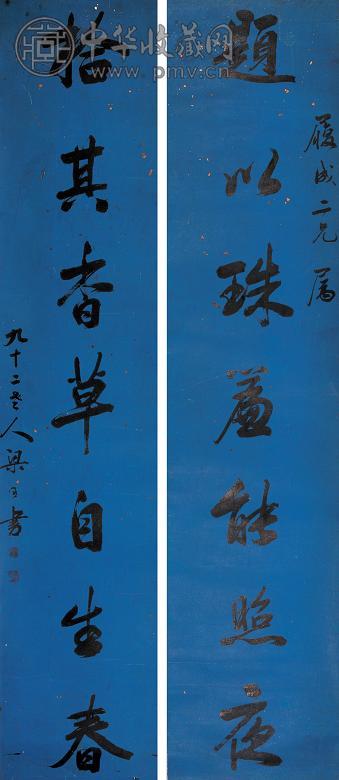 中华收藏网
www.pmv.cn
履成二兄属
題以珠能照夜
拾其香草自生春
九十二老人梁同書